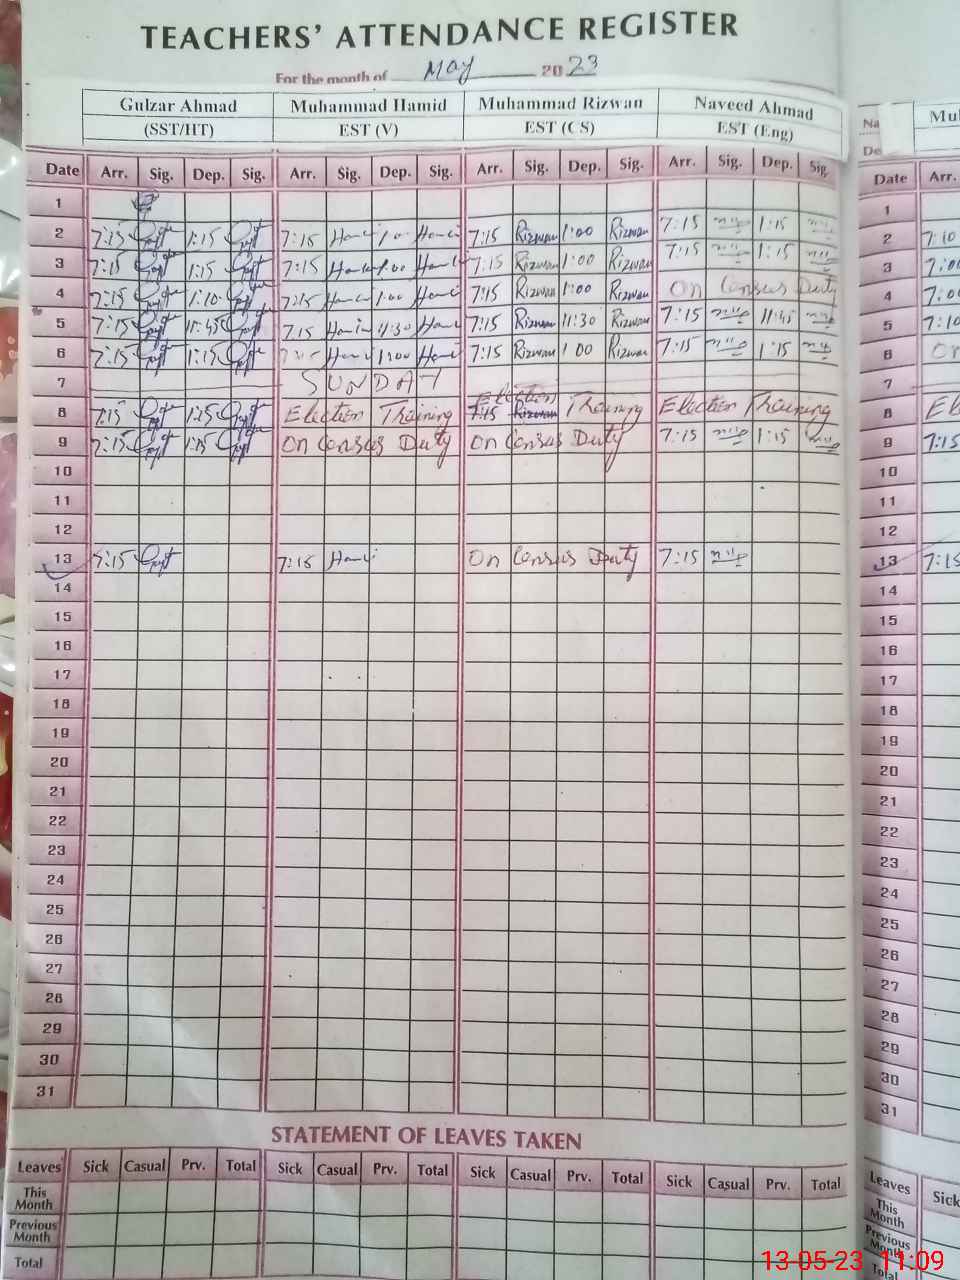 TEACHERS' ATTENDANCE REGISTER
For the month of May 2023
Gulzar Ahmad Muhammad Hamid Muhammad Rizwan Naveed Ahmad
(SST/HT) EST (V) EST (CS) EST (Eng)
Date Arr. Sig. Dep. Sig. Arr. Sig. Dep. Sig. Arr. Sig. Dep. Sig. Arr. Sig. Dep. Sig. Date Arr.
1 1
2 7:15 1:15 7:15 Rizwan 1:00 Rizwan 7:15 1:15 2 7:10
3 7:15 1:15 7:15 1:00 7:15 Rizwan 1:00 Rizwan 7:15 1:15 3 7:00
4 7:15 1:10 7:15 1:00 7:15 Rizwan 1:00 Rizwan On Census Duty 4 7:00
5 7:15 11:45 7:15 11:30 7:15 Rizwan 11:30 Rizwan 7:15 11:45 5 7:10
6 7:15 1:15 7:15 1:00 7:15 Rizwan 1 00 Rizwan 7:15 1:15 6 On
7 SUNDAY 7
8 7:15 1:15 Election Training Election Training Election Training 8 El
9 7:15 1:15 On Census Duty On Census Duty 7:15 1:15 9 7:15
10 10
11 11
12 12
13 7:15 7:15 On Census Duty 7:15 13 7:15
14 14
15 15
16 16
17 17
18 18
19 19
20 20
21 21
22 22
23 23
24 24
25 25
26 26
27 27
28 28
29 29
30 30
31 31
STATEMENT OF LEAVES TAKEN
Leaves Sick Casual Prv. Total Sick Casual Prv. Total Sick Casual Prv. Total Sick Casual Prv. Total Leaves Sick
This Month This Month
Previous Month Previous Month
Total Total
13-05-23 11:09